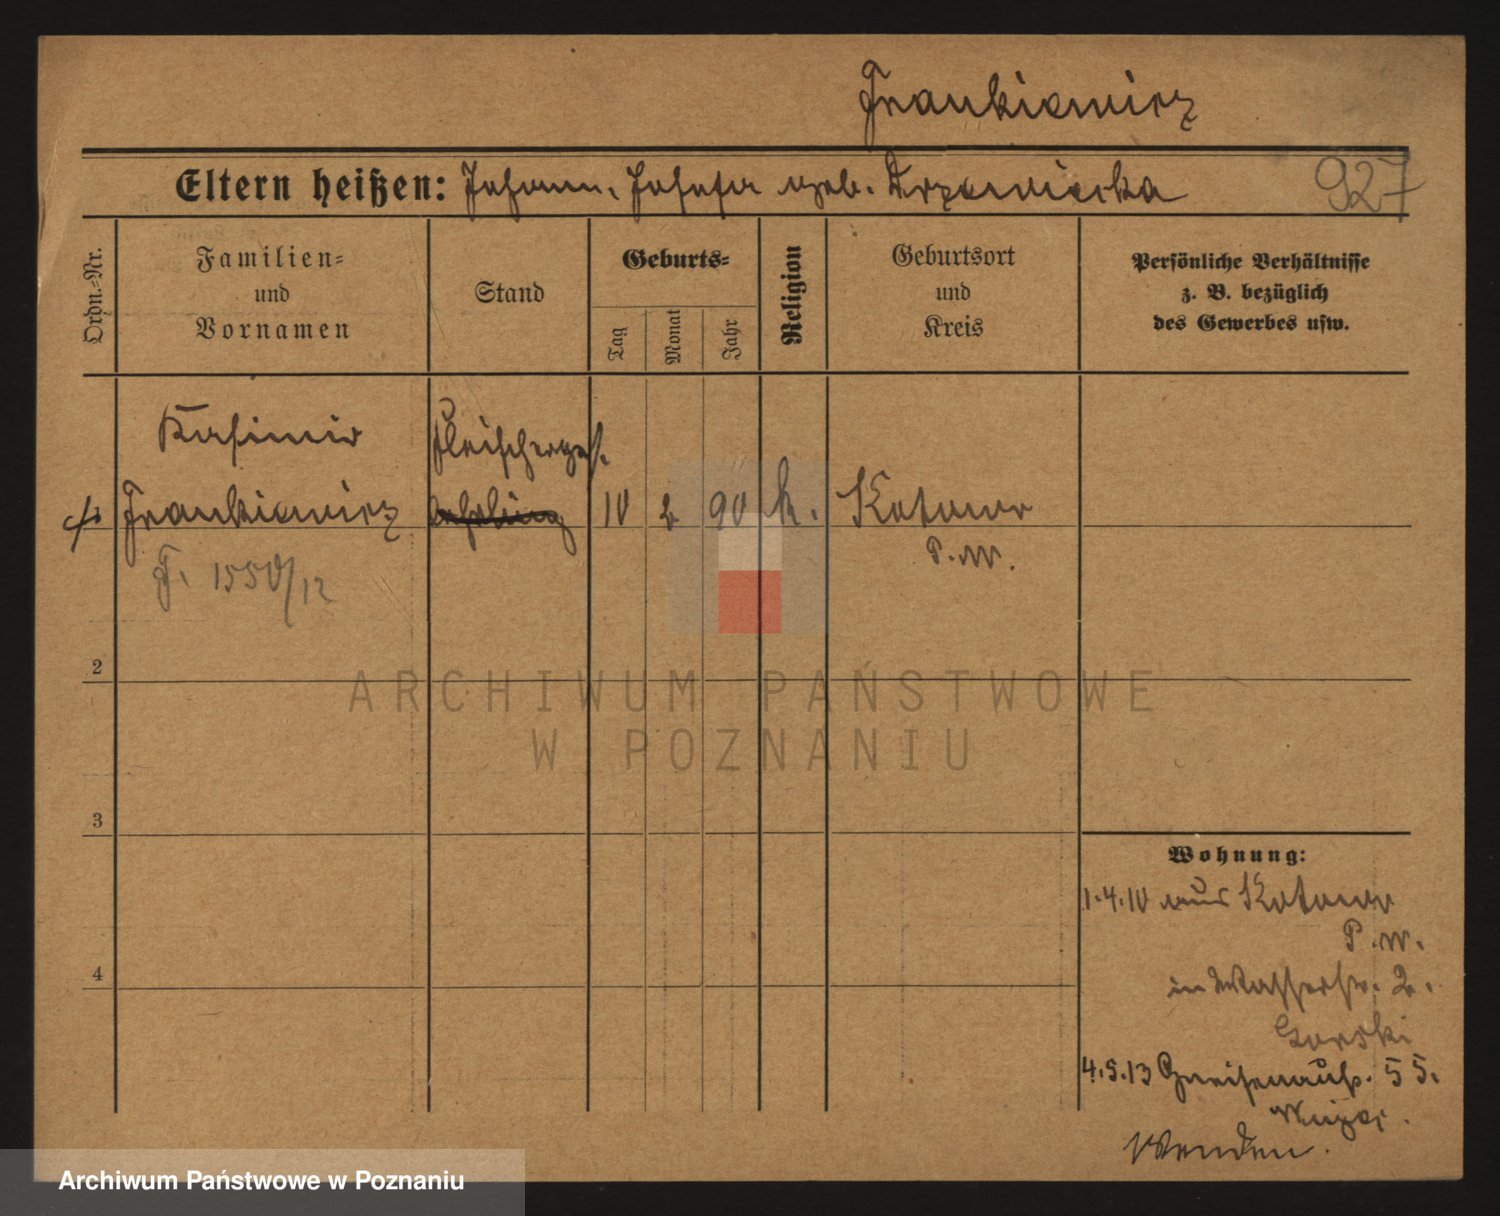 Frankiewicz
927
Eltern heißen: Johann, Josefa geb. Drzewiecka
Ordn.-Nr.
Familien-
und
Vornamen
Stand
Geburts-
Tag
Monat
Jahr
Religion
Geburtsort
und
Kreis
Persönliche Verhältnisse
z. B. bezüglich
des Gewerbes usw.
Kasimir
Fleischerges.
Frankiewicz
Lehrling
10 2 90 k. Kotowo
P. W.
F. 1550/12
2
ARCHIWUM PAŃSTWOWE
W POZNANIU
3
Wohnung:
1.4.10 aus Kotowo
P. W.
4
in Wasserstr. 2.
Gorski
4.5.13 Gneisenaustr. 55.
Wenden.
Archiwum Państwowe w Poznaniu